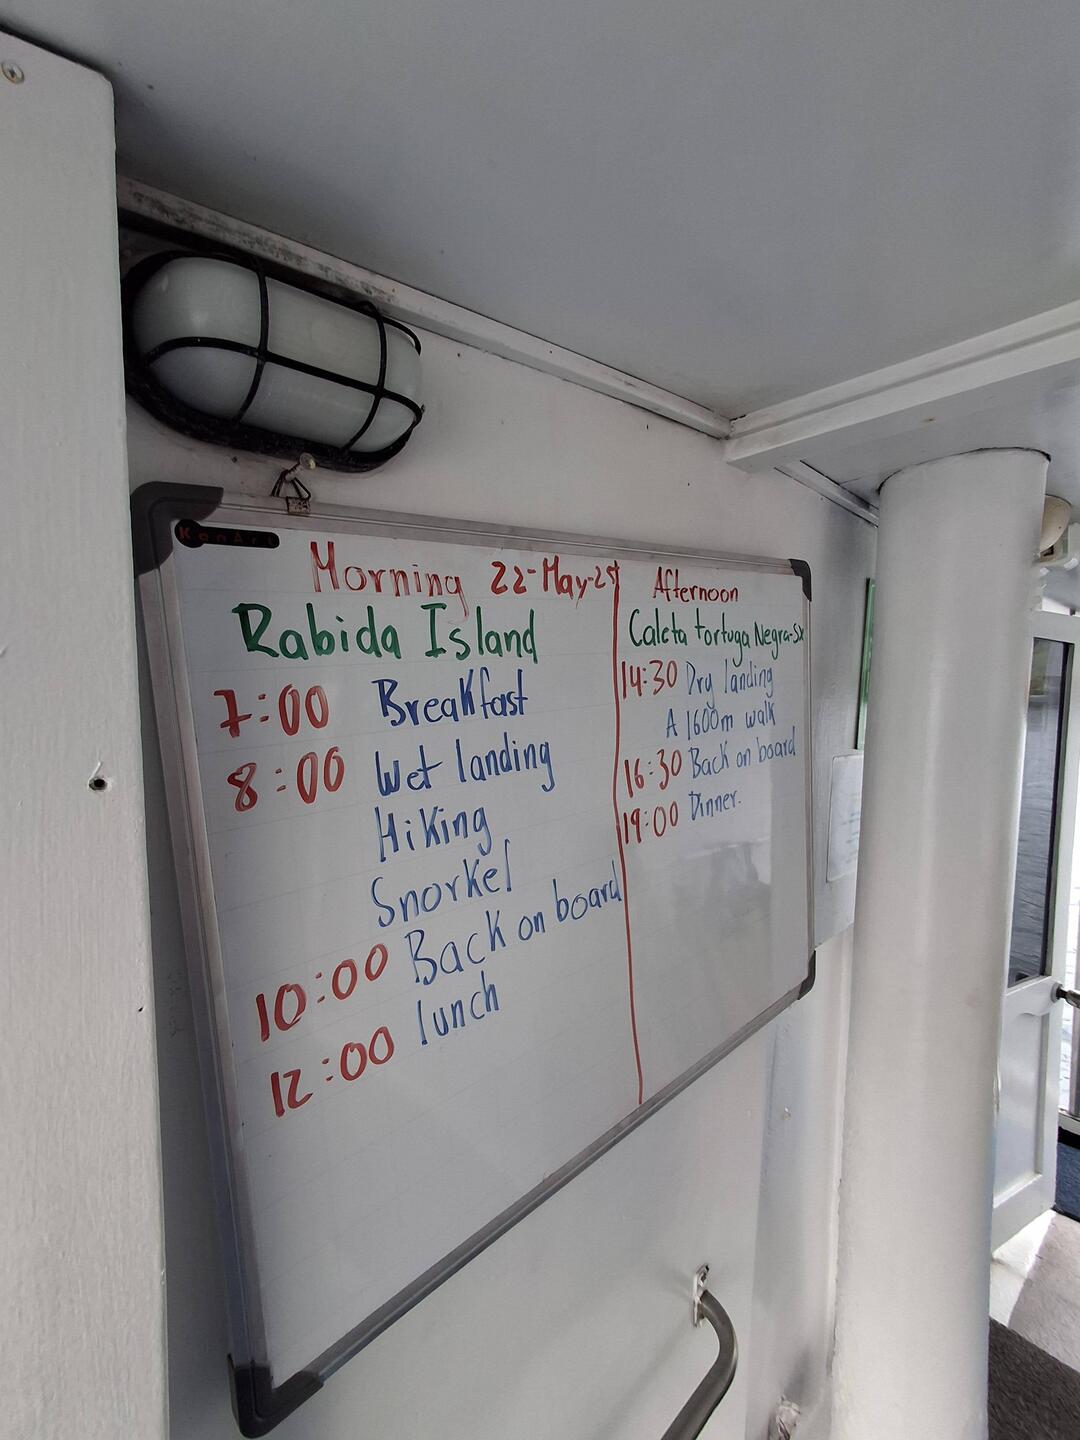 KanArt
Morning 22-May-25
Rabida Island
7:00 Breakfast
8:00 Wet landing
Hiking
Snorkel
10:00 Back on board
12:00 lunch
Afternoon
Caleta tortuga Negra-Sx
14:30 Dry landing
A 1600m walk
16:30 Back on board
19:00 Dinner.